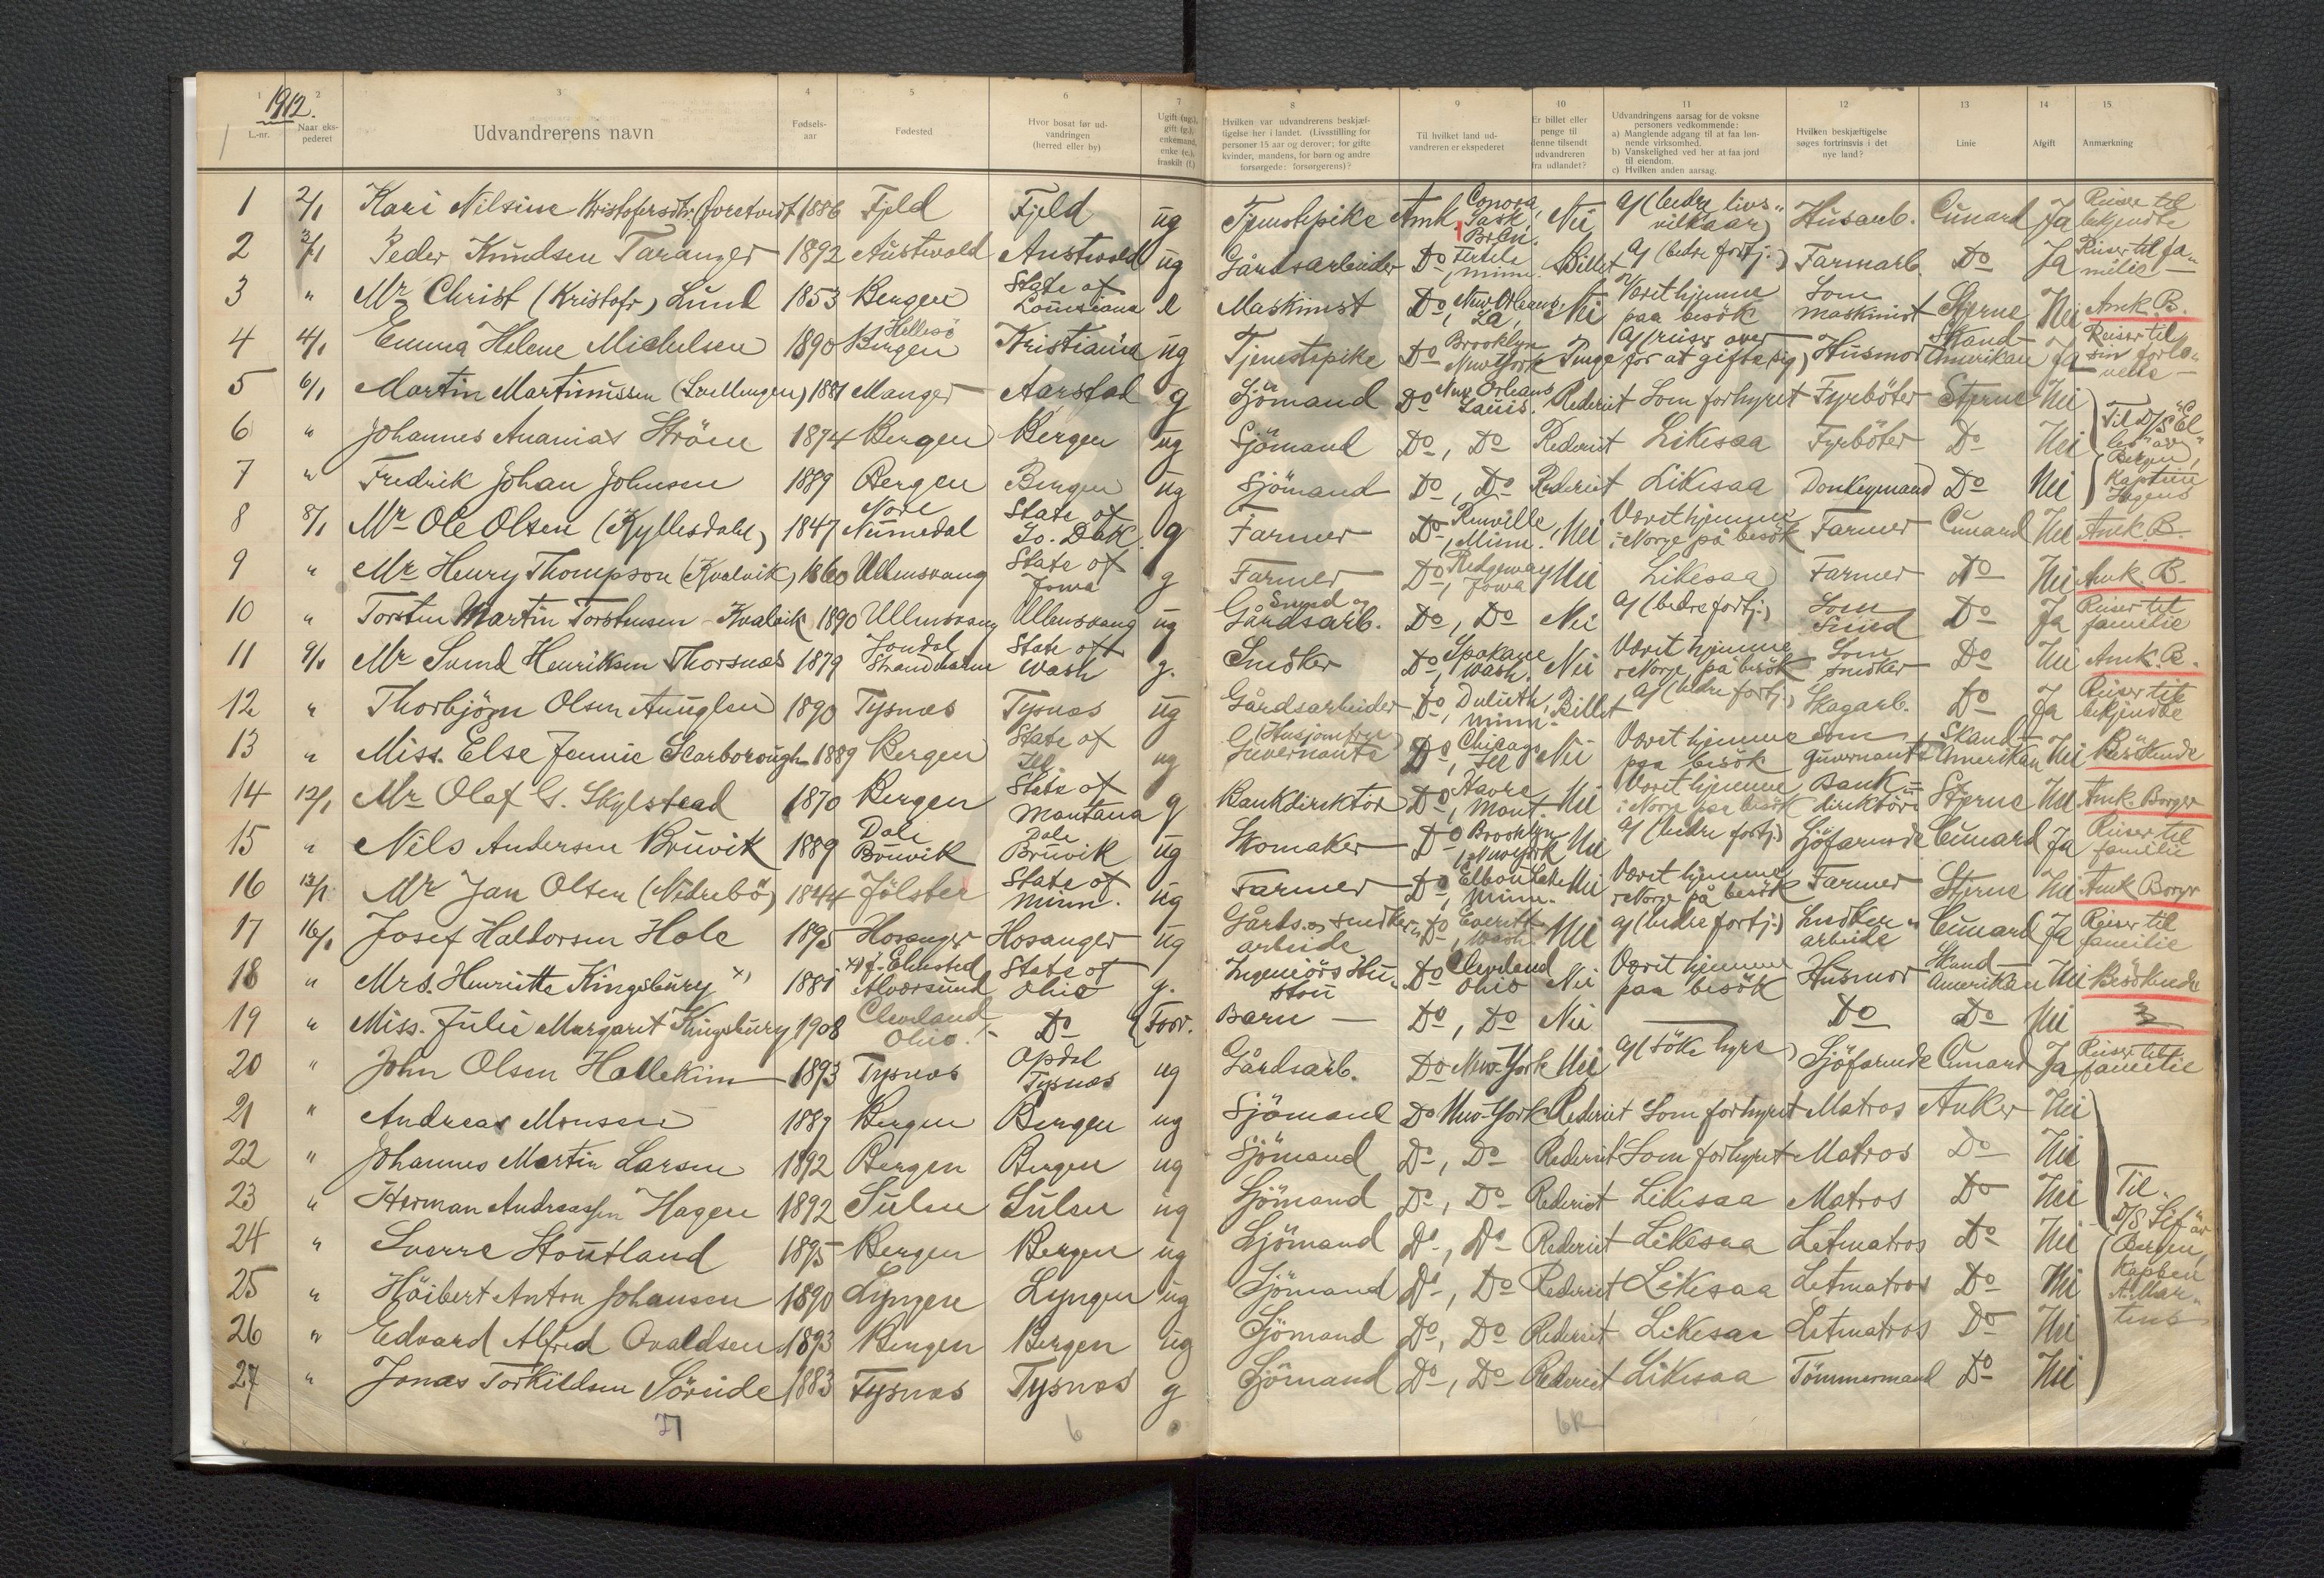 1912.
1 2 3 4 5 6 7 8 9 10 11 12 13 14 15
L.-nr. | Naar ekspederet | Udvandrerens navn | Fødselsaar | Fødested | Hvor bosat før udvandringen (herred eller by) | Ugift (ug.), gift (g.), enkemand, enke (e.), fraskilt (f.) | Hvilken var udvandrerens beskjæftigelse her i landet. (Livsstilling for personer 15 aar og derover; for gifte kvinder, mandens, for børn og andre forsørgede: forsørgerens)? | Til hvilket land udvandreren er ekspederet | Er billet eller penge til denne tilsendt udvandreren fra udlandet? | Udvandringens aarsag for de voksne personers vedkommende: a) Manglende adgang til at faa lønnende virksomhed. b) Vanskelighed ved her at faa jord til eiendom. c) Hvilken anden aarsag. | Hvilken beskjæftigelse søges fortrinsvis i det nye land? | Linie | Afgift | Anmærkning
1 2/1 Kari Nilsine Kristofersdtr. 1886 Fjeld Fjeld ug Tjenestepike Amk. Sask. Nei a) (bedre livsvilkaar) Husarb. Cunard Ja Reiser til bekjendte
2 3/1 Peder Knudsen Taranger 1892 Austevold Austevold ug Gårdsarbeider Do, Minn. Billet a) (bedre fortj.) Farmarb. Do Ja Reiser til familie
3 " Mr Christ (Kristofr) Lund 1853 Bergen State of Louisiana e Maskinist Do, New Orleans, La, Nei Været hjemme paa besök Som maskinist Stjerne Nei Amk. B.
4 4/1 Emma Helene Michelsen 1890 Hellesö Bergen Kristiania ug Tjenestepike Do Brooklyn New York Penge a) (reiser over for at gifte sig) Husmor Skand Amerikan Ja Reiser til sin forlovede
5 6/1 Martin Martinussen 1881 Manger Aarstad g Sjömand Do New Orleans Louis. Rederiet Som forhyret Fyrböter Stjerne Nei
6 " Johannes Ananias Ström 1874 Bergen Bergen ug Sjömand Do, Do Rederiet Likesaa Fyrböter Do Nei Til D/S
7 " Fredrik Johan Johnsen 1889 Bergen Bergen ug Sjömand Do, Do Rederiet Likesaa Donkeymand Do Nei Bergen, Kaptein
8 8/1 Mr Ole Olsen (Kyllesdalen) 1847 Nore Numedal State of So. Dak. g Farmer Do, Renville, Minn. Nei Været hjemme i Norge på besök Farmer Cunard Nei Amk. B.
9 " Mr Henry Thompson (Kvalvik) 1860 Ullensvang State of Iowa g Farmer Do, Ridgeway Iowa Nei Likesaa Farmer Do Nei Amk. B.
10 " Torsten Martin Torstensen Kvalvik 1890 Ullensvang Ullensvang ug Smed og Gårdsarb. Do, Do Nei a) (bedre fortj.) Som Smed Do Ja Reiser til familie
11 9/1 Mr Svend Henriksen Thorsnæs 1879 Jondal Strandebarm State of Wash g. Snedker Do, Spokane Wash. Nei Været hjemme i Norge, på besök Som snedker Do Nei Amk. B.
12 " Thorbjörn Olsen Aunglen 1890 Tysnæs Tysnæs ug Gårdsarbeider Do, Duluth, Minn. Billet a) (bedre fortj.) Skogarb. Do Ja Reiser til bekjendte
13 " Miss. Else Jennie Scarborough 1889 Bergen State of Ill. ug (Husjomfru) Guvernante Do, Chicago Ill Nei Været hjemme paa besök Som guvernante Skand Amerikan Nei Besökende
14 12/1 Mr Olaf G. Skylstead 1870 Bergen State of Montana g Bankdirektör Do, Havre, Mont. Nei Været hjemme i Norge paa besök Bankdirektör Stjerne Nei Amk. Borger
15 " Nils Andersen Bruvik 1889 Dale Bruvik Dale Bruvik ug Skomaker Do Brooklyn, New York Nei a) (bedre fortj.) Sjöfarende Cunard Ja Reiser til familie
16 13/1 Mr Jan Olsen (Nedrebö) 1844 Jölster State of Minn. ug Farmer Do Elbow Lake, Minn. Nei Været hjemme i Norge på besök Farmer Stjerne Nei Amk Borger
17 16/1 Josef Haldorsen Hole 1895 Hosanger Hosanger ug Gårds og snedkerarbeide Do, Everett Wash. Nei a) (bedre fortj.) Snedkerarbeide Cunard Ja Reiser til familie
18 " Mrs. Henriette Kingsbury x) 1881 x) f. Elmsted Alversund State of Ohio g. Ingeniörs Hustru Do Cleveland Ohio Nei Været hjemme paa besök Husmor Skand Amerikan Nei Besökende
19 " Miss. Julie Margaret Kingsbury 1908 Cleveland, Ohio. Do Barn Do, Do Nei — Do Do Nei
20 " John Olsen Hallekim 1893 Tysnæs Opdal Tysnæs ug Gårdsarb. Do New-York Nei a) (söke hyre) Sjöfarende Cunard Ja Reiser til familie
21 " Andreas Monsen 1889 Bergen Bergen ug Sjömand Do New-York Rederiet Som forhyret Matros Anker Nei
22 " Johannes Martin Larsen 1892 Bergen Bergen ug Sjömand Do, Do Rederiet Som forhyret Matros Do Nei
23 " Herman Andreassen Hagen 1892 Sulen Sulen ug Sjömand Do, Do Rederiet Likesaa Matros Do Nei Til
24 " Sverre Stoutland 1895 Bergen Bergen ug Sjömand Do, Do Rederiet Likesaa Letmatros Do Nei D/S Sif av Bergen,
25 " Håibert Anton Johansen 1890 Lyngen Lyngen ug Sjömand Do, Do Rederiet Likesaa Letmatros Do Nei Kapten
26 " Edvard Alfred Ovaldsen 1893 Bergen Bergen ug Sjömand Do, Do Rederiet Likesaa Letmatros Do Nei
27 " Jonas Torkildsen Söreide 1883 Tysnæs Tysnæs g Sjömand Do, Do Rederiet Likesaa Tömmermand Do Nei
6